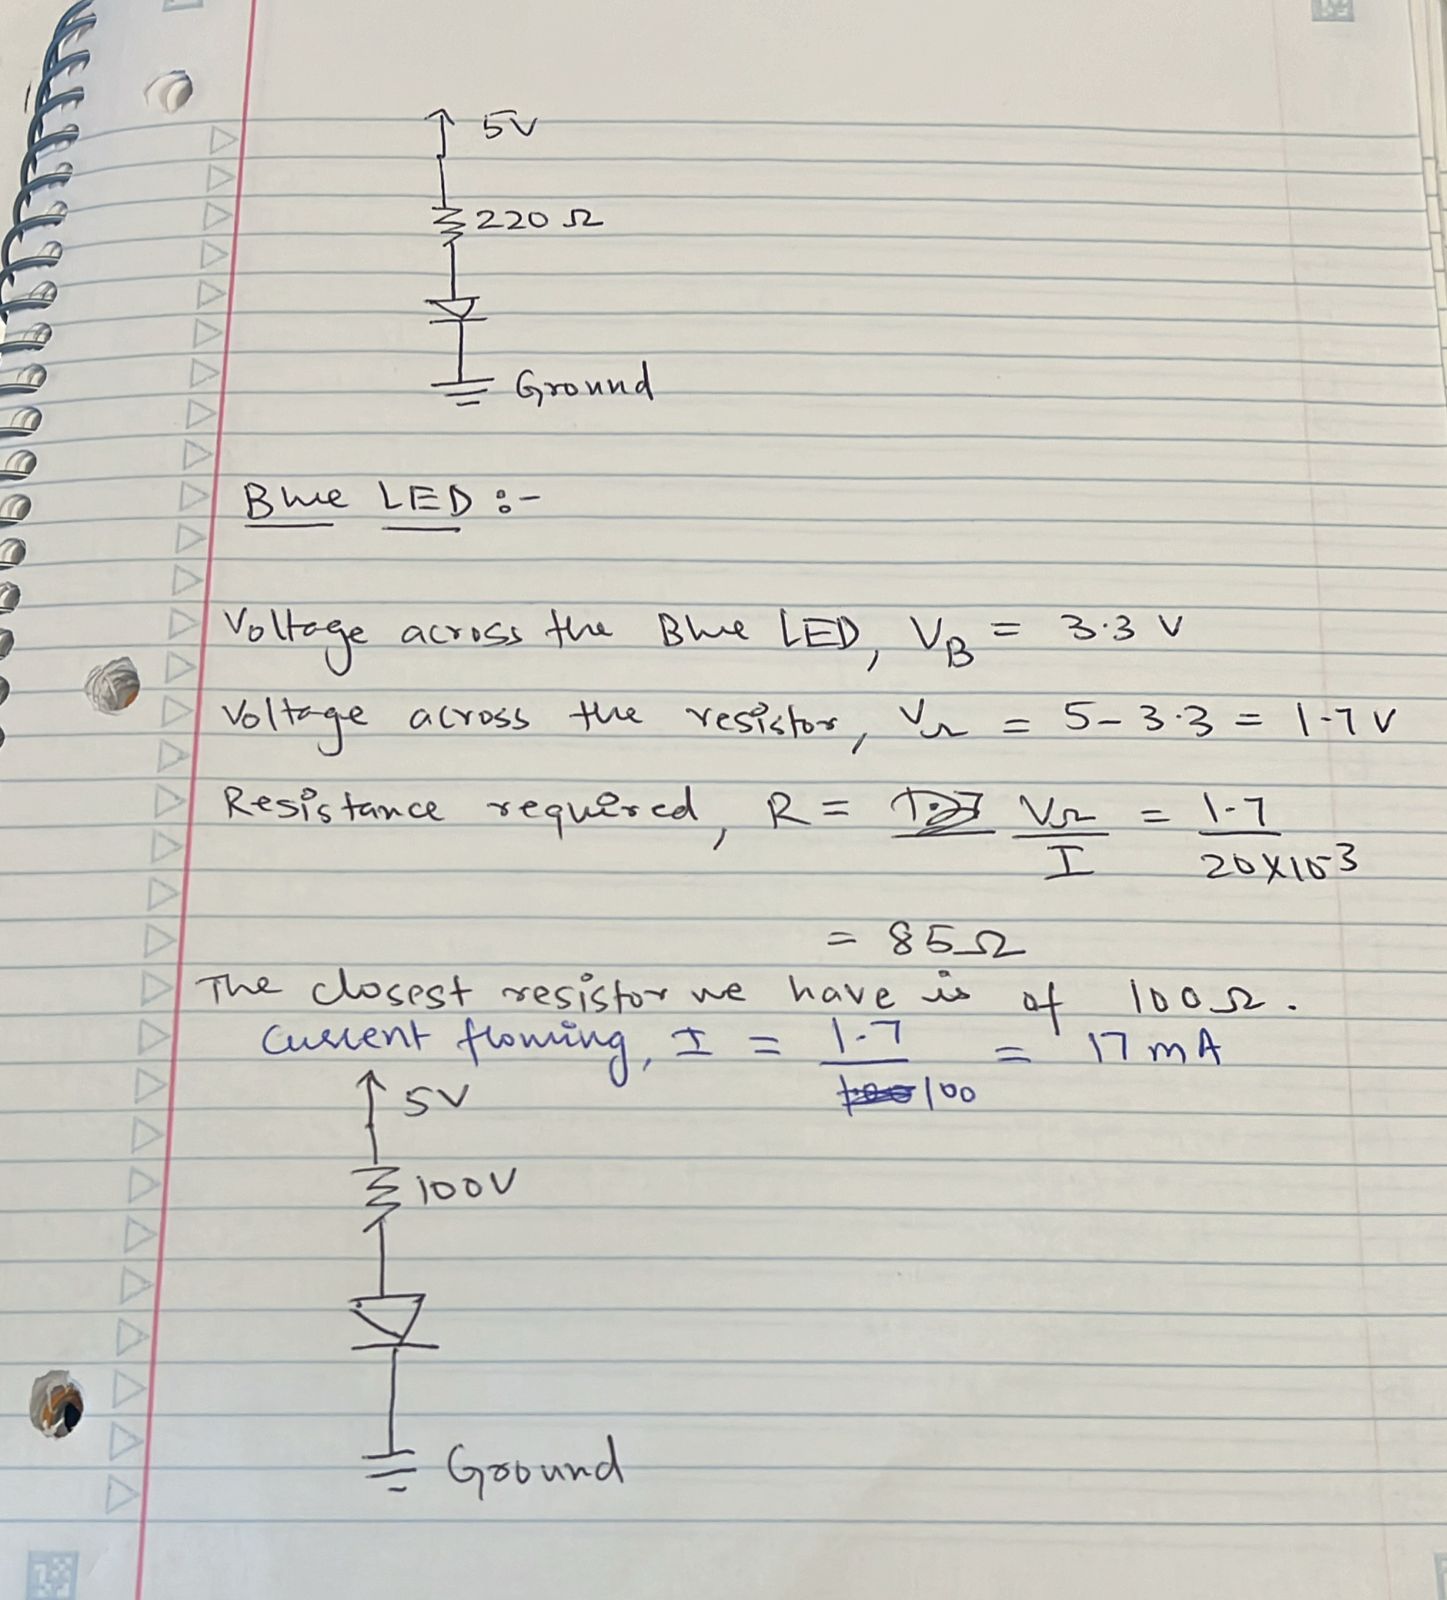 5V
220 Ω
Ground
Blue LED :-
Voltage across the Blue LED, V_B = 3.3 V
Voltage across the resistor, V_r = 5 - 3.3 = 1.7 V
Resistance required, R = V_r / I = 1.7 / 20 x 10^-3
= 85 Ω
The closest resistor we have is of 100 Ω.
Current flowing, I = 1.7 / 100 = 17 mA
5V
100V
Ground